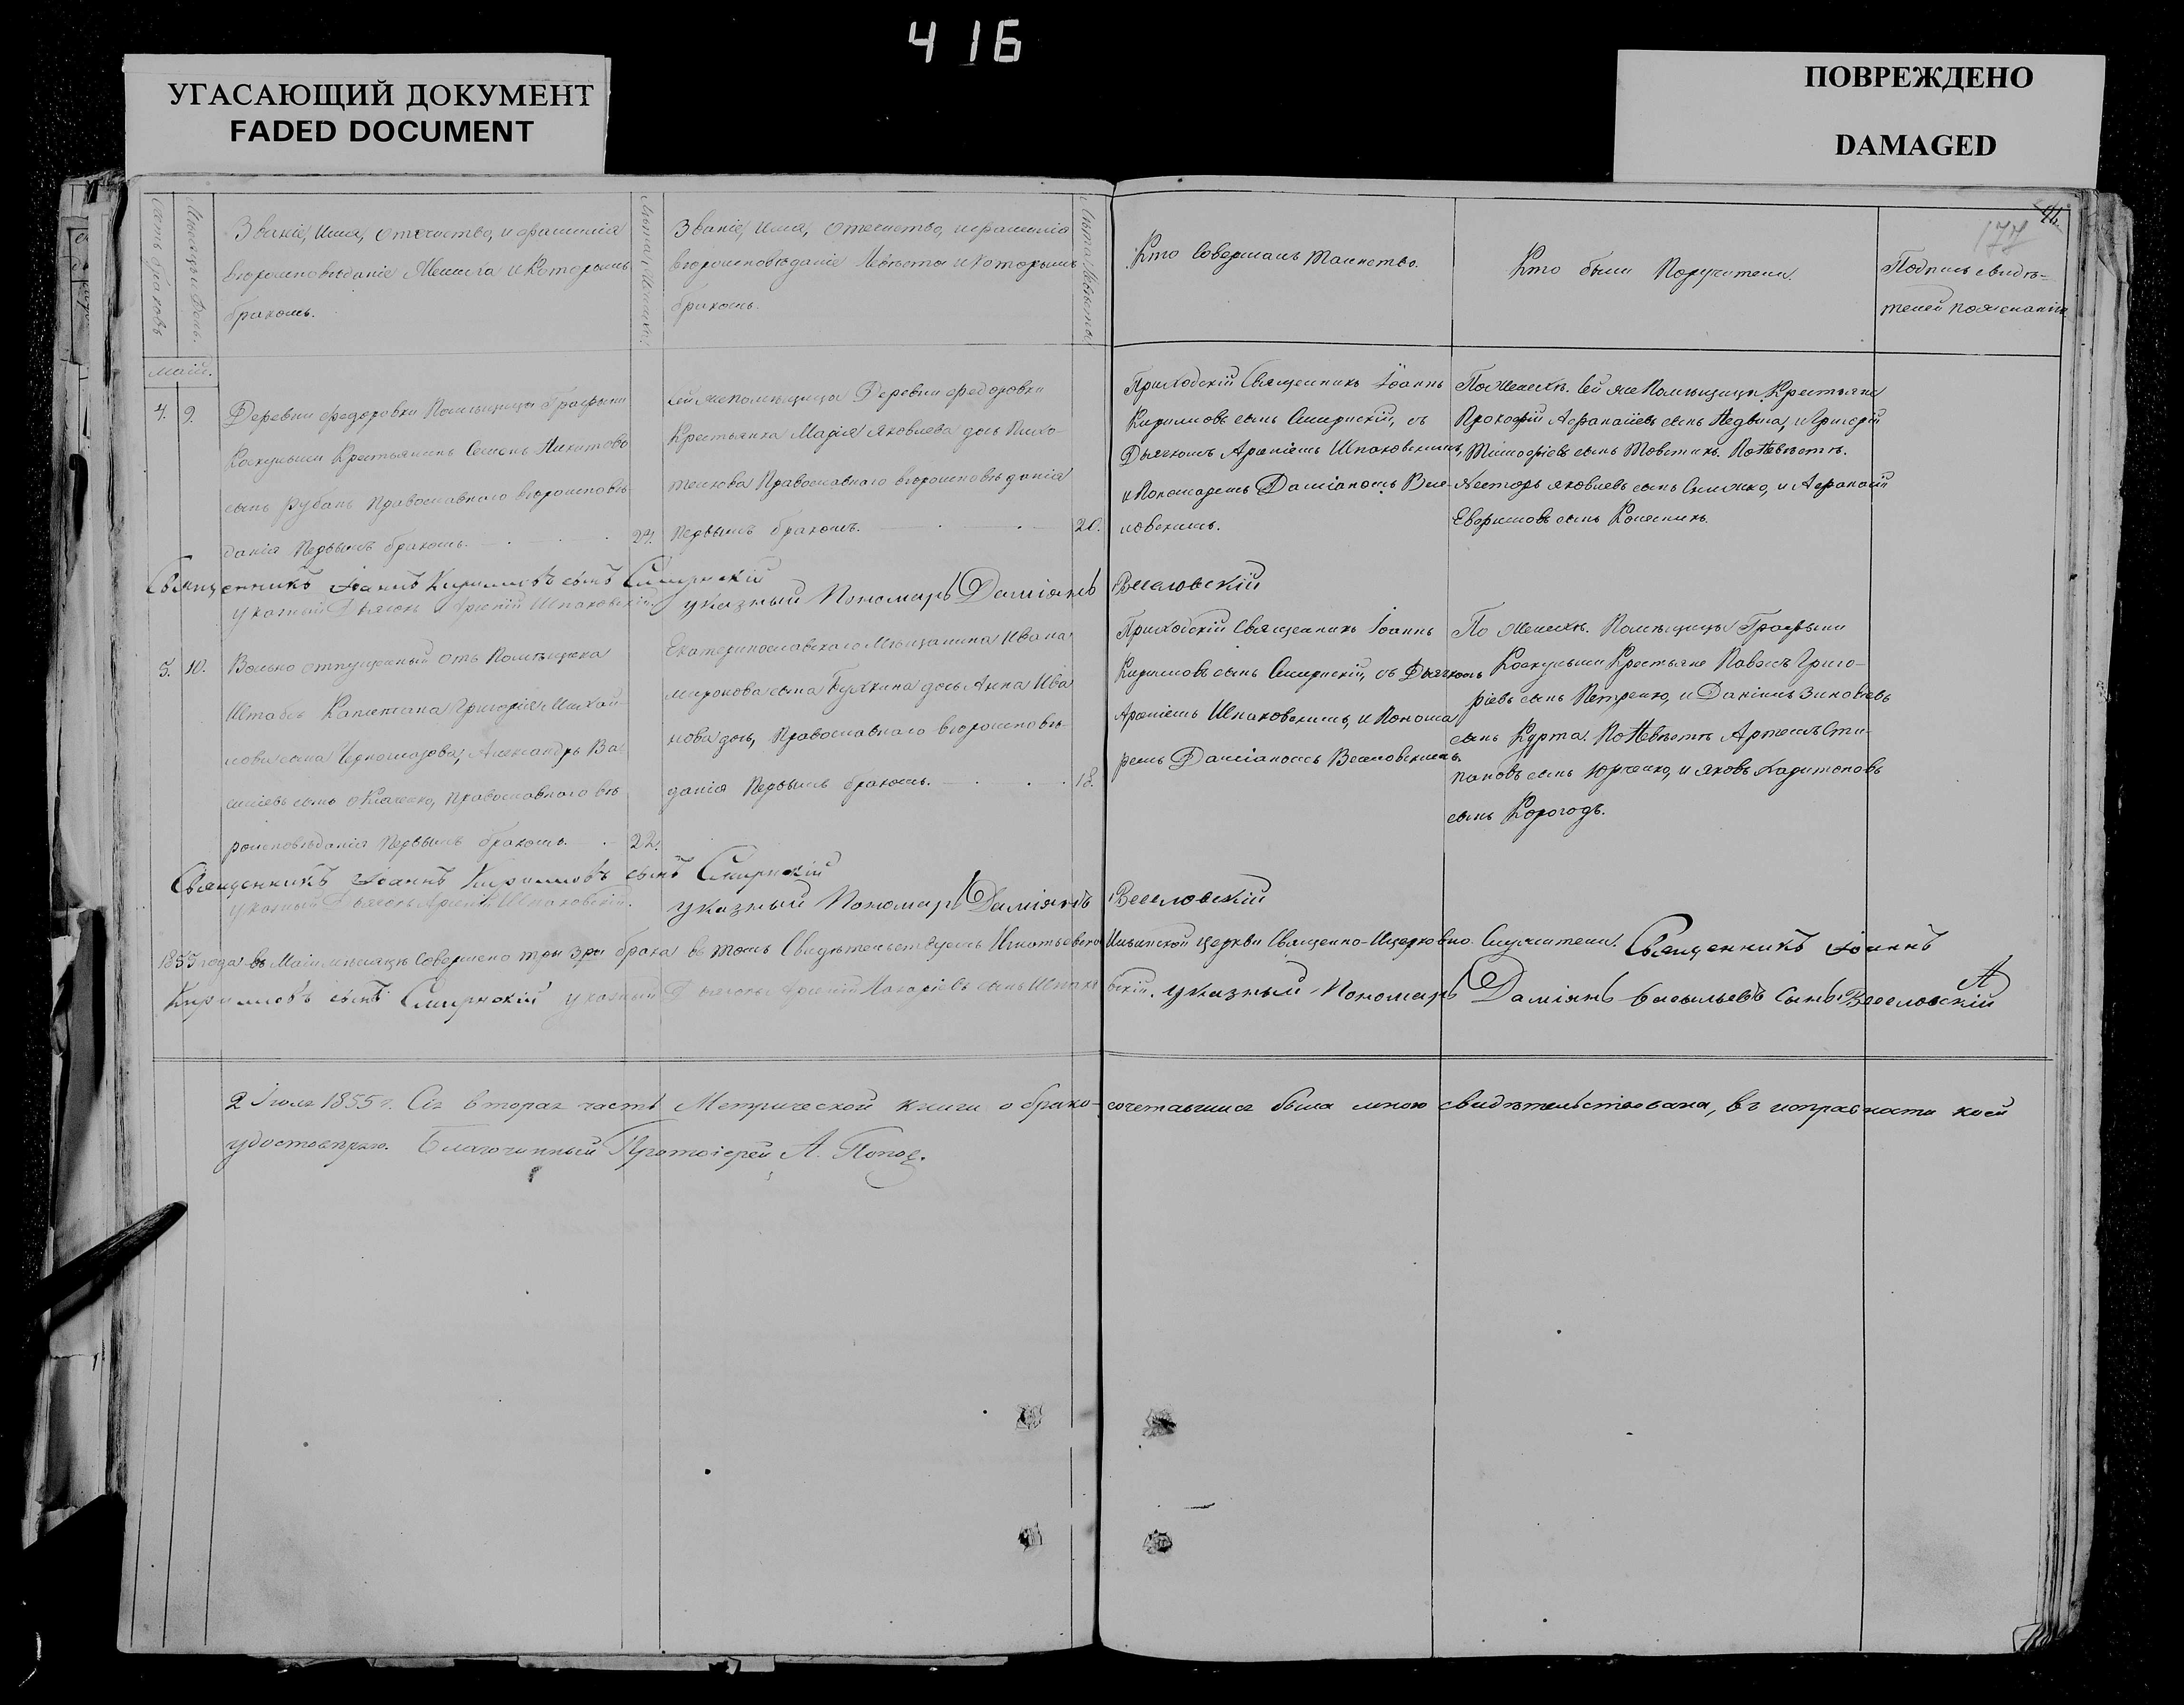 416
УГАСАЮЩИЙ ДОКУМЕНТ
FADED DOCUMENT
ПОВРЕЖДЕНО
DAMAGED
177
Счетъ браковъ
Мѣсяцъ и День.
Званіе, имя, отечество, и фамилія
вѣроисповѣданіе Жениха и Которымъ
бракомъ.
Лѣта Жениха.
Званіе, имя, отечество, и фамилія
вѣроисповѣданіе Невѣсты и которымъ
бракомъ.
Лѣта Невѣсты
Кто Совершалъ таинство.
Кто были Поручители.
Подпись свидѣ-
телей по желанію.
маій.
4. 9.
Деревни Федоровки Помѣщицы Графыни
Крестьянинъ Семенъ Никитовъ
сынъ Рубанъ Православнаго вѣроисповѣ-
данія Первымъ бракомъ.
24.
сей же помѣщицы Деревни Федоровки
Крестьянка Марія Яковлева дочь
Православнаго вѣроисповѣданія
Первымъ бракомъ.
20.
Приходскій Священникъ Іоаннъ
Кириловъ сынъ Смирнскій, съ
Дьячкомъ Арсеніемъ Шпаковскимъ,
и Пономаремъ Даміаномъ Весе-
ловскимъ.
По Женихѣ. Сей же Помѣщицы Крестьяне
Прокофій Афанасіевъ сынъ Недвига, и Григорій
Тимофіевъ сынъ Товстикъ. По Невѣстѣ.
Несторъ Яковлевъ сынъ и Афанасій
Ефримовъ сынъ Колесникъ.
Священникъ Іоаннъ Кирилловъ сынъ Смирнскій
указный Дьячокъ Арсеній Шпаковскій.
указный Пономарь Даміянъ Веселовскій
5. 10.
Вольно отпущенный отъ Помѣщика
Штабсъ Капитана Григорія Михай-
лова сына Черноглазова, Александръ Ва-
силіевъ сынъ Православнаго вѣ-
роисповѣданія Первымъ бракомъ.
22.
Екатеринославскаго Мѣщанина Ивана
Миронова сына дочь Анна Ива
нова дочь, Православнаго вѣроисповѣ-
данія Первымъ бракомъ.
18.
Приходскій Священникъ Іоаннъ
Кириловъ сынъ Смирнскій, съ Дьячкомъ
Арсеніемъ Шпаковскимъ, и Понома
ремъ Даміаномъ Веселовскимъ.
По Женихѣ. Помѣщицы Графыни
Крестьяне Павелъ Григо-
ріевъ сынъ Петренко, и Даніилъ Зиновіевъ
сынъ Курта. По Невѣстѣ Артемъ Сти-
пановъ сынъ Юрченко, и Яковъ Харитоновъ
сынъ Корогодъ.
Священникъ Іоаннъ Кирилловъ сынъ Смирнскій
указный Дьячокъ Арсеній Шпаковскій.
указный Пономарь Даміянъ Веселовскій
1855 года въ Маіи мѣсяцѣ Совершено три 3ри брака въ томъ Свидѣтельствуемъ Ильинской церкви Священно-Ицерковно Служители. Священникъ Іоаннъ
Кирилловъ сынъ Смирнскій указный Дьячокъ Арсеній Макаріевъ сынъ Шпаковскій. указный Пономарь Даміянъ Васильевъ Сынъ Веселовскій
2 Іюля 1855 г. Сія вторая часть Метрической книги о брако-сочетавшихся была мною свидѣтельствована, въ исправности коей
удостовѣряю. Благочинный Протоіерей А. Поповъ.